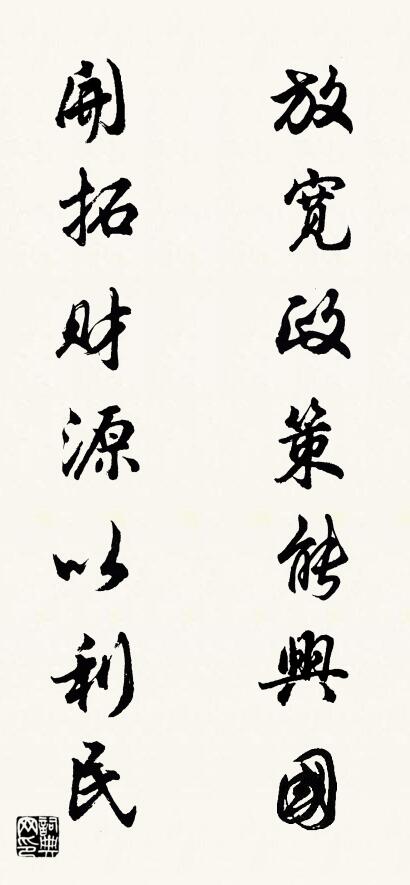 放寬政策能興國
開拓財源以利民
詞典網印